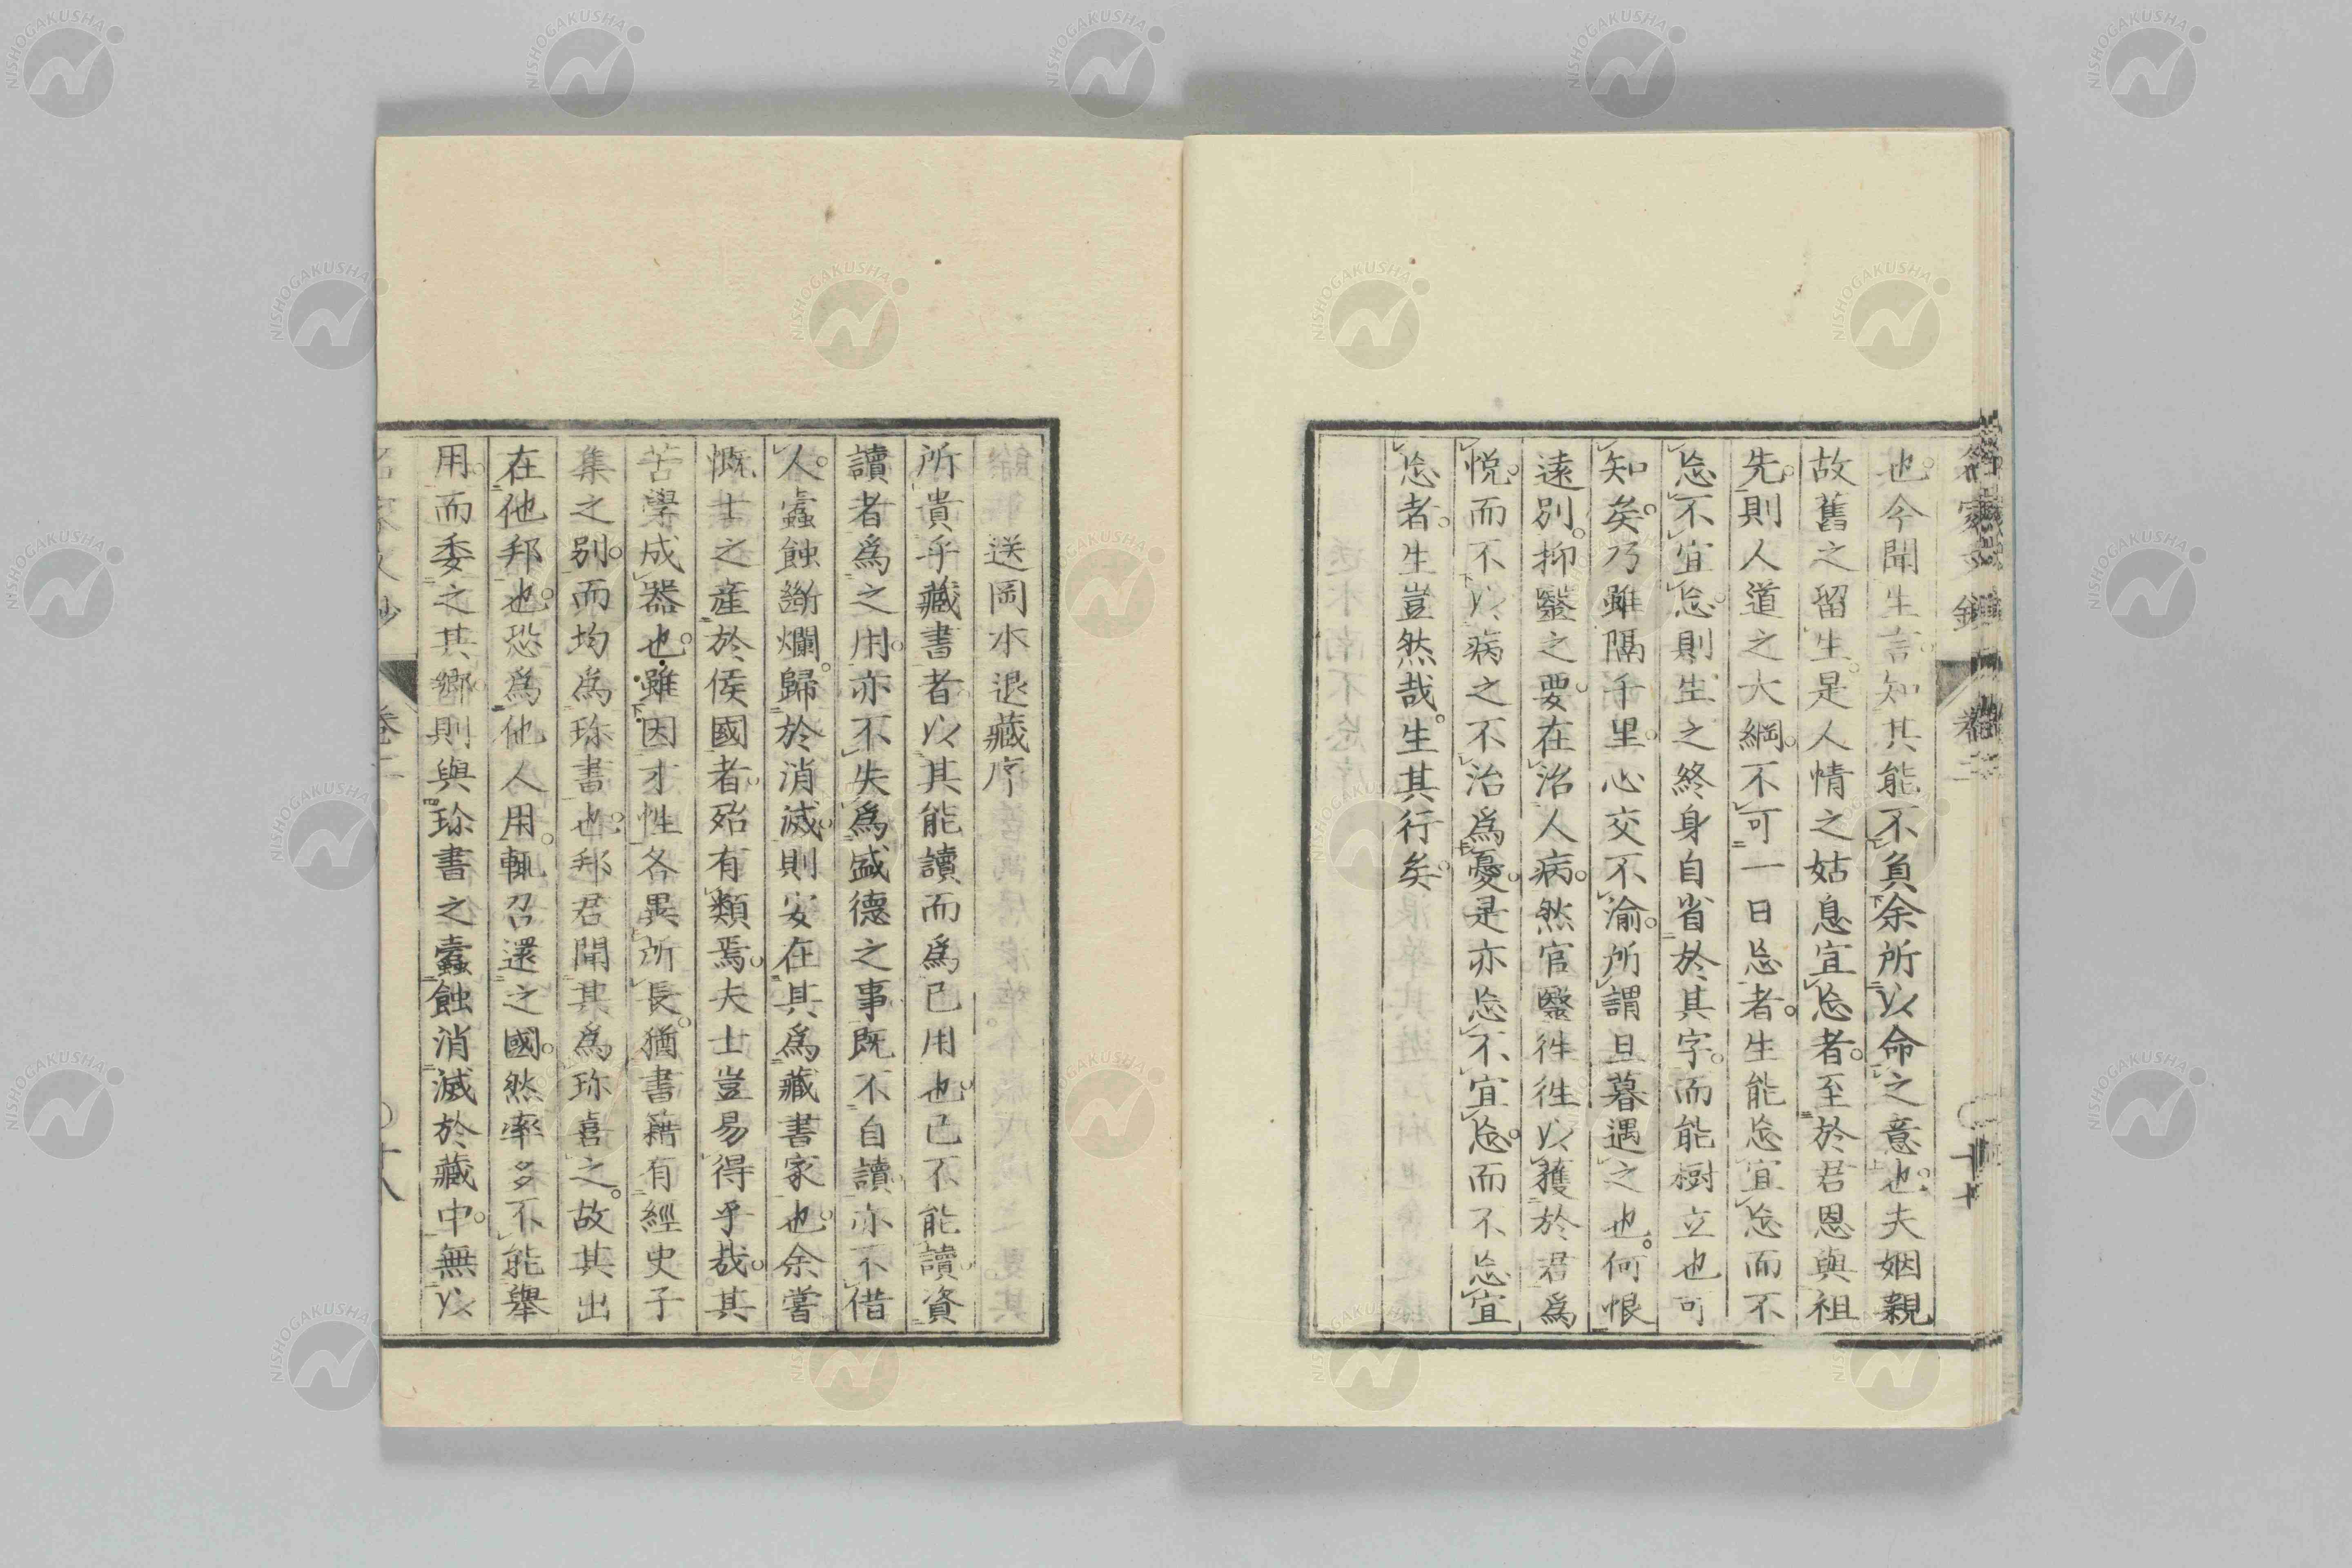 也。今聞生言。知其能不負余所以命之意也。夫姻親
故舊之留生。是人情之姑息。宜忘者。至於君恩與祖
先。則人道之大綱。不可一日忘者。生能忘宜忘而不
忘不宜忘。則生之終身自省於其字。而能樹立也可
知矣。乃雖隔千里。心交不渝。所謂旦暮遇之也。何恨
遠別。抑醫之要。在治人病。然官醫徃徃以獲於君為
悅。而不以病之不治爲憂。是亦忘不宜忘。而不忘宜
忘者。生豈然哉。生其行矣。
送岡本退藏序
所貴乎藏書者。以其能讀而爲已用也。已不能讀。資
讀者爲之用。亦不失爲盛德之事。既不自讀。亦不借
人。蠧蝕斷爛。歸於消滅。則安在其爲藏書家也。余嘗
慨士之產於侯國者。殆有類焉。夫士豈易得乎哉。其
苦學成器也。雖因才性各異所長。猶書籍有經史子
集之別。而均爲珎書也。邦君聞其爲珎喜之。故其出
在他邦也。恐爲他人用。輒召還之國。然率多不能舉
用。而委之其鄉。則與珎書之蠧蝕消滅於藏中。無以
卷二
NISHOGAKUSHA